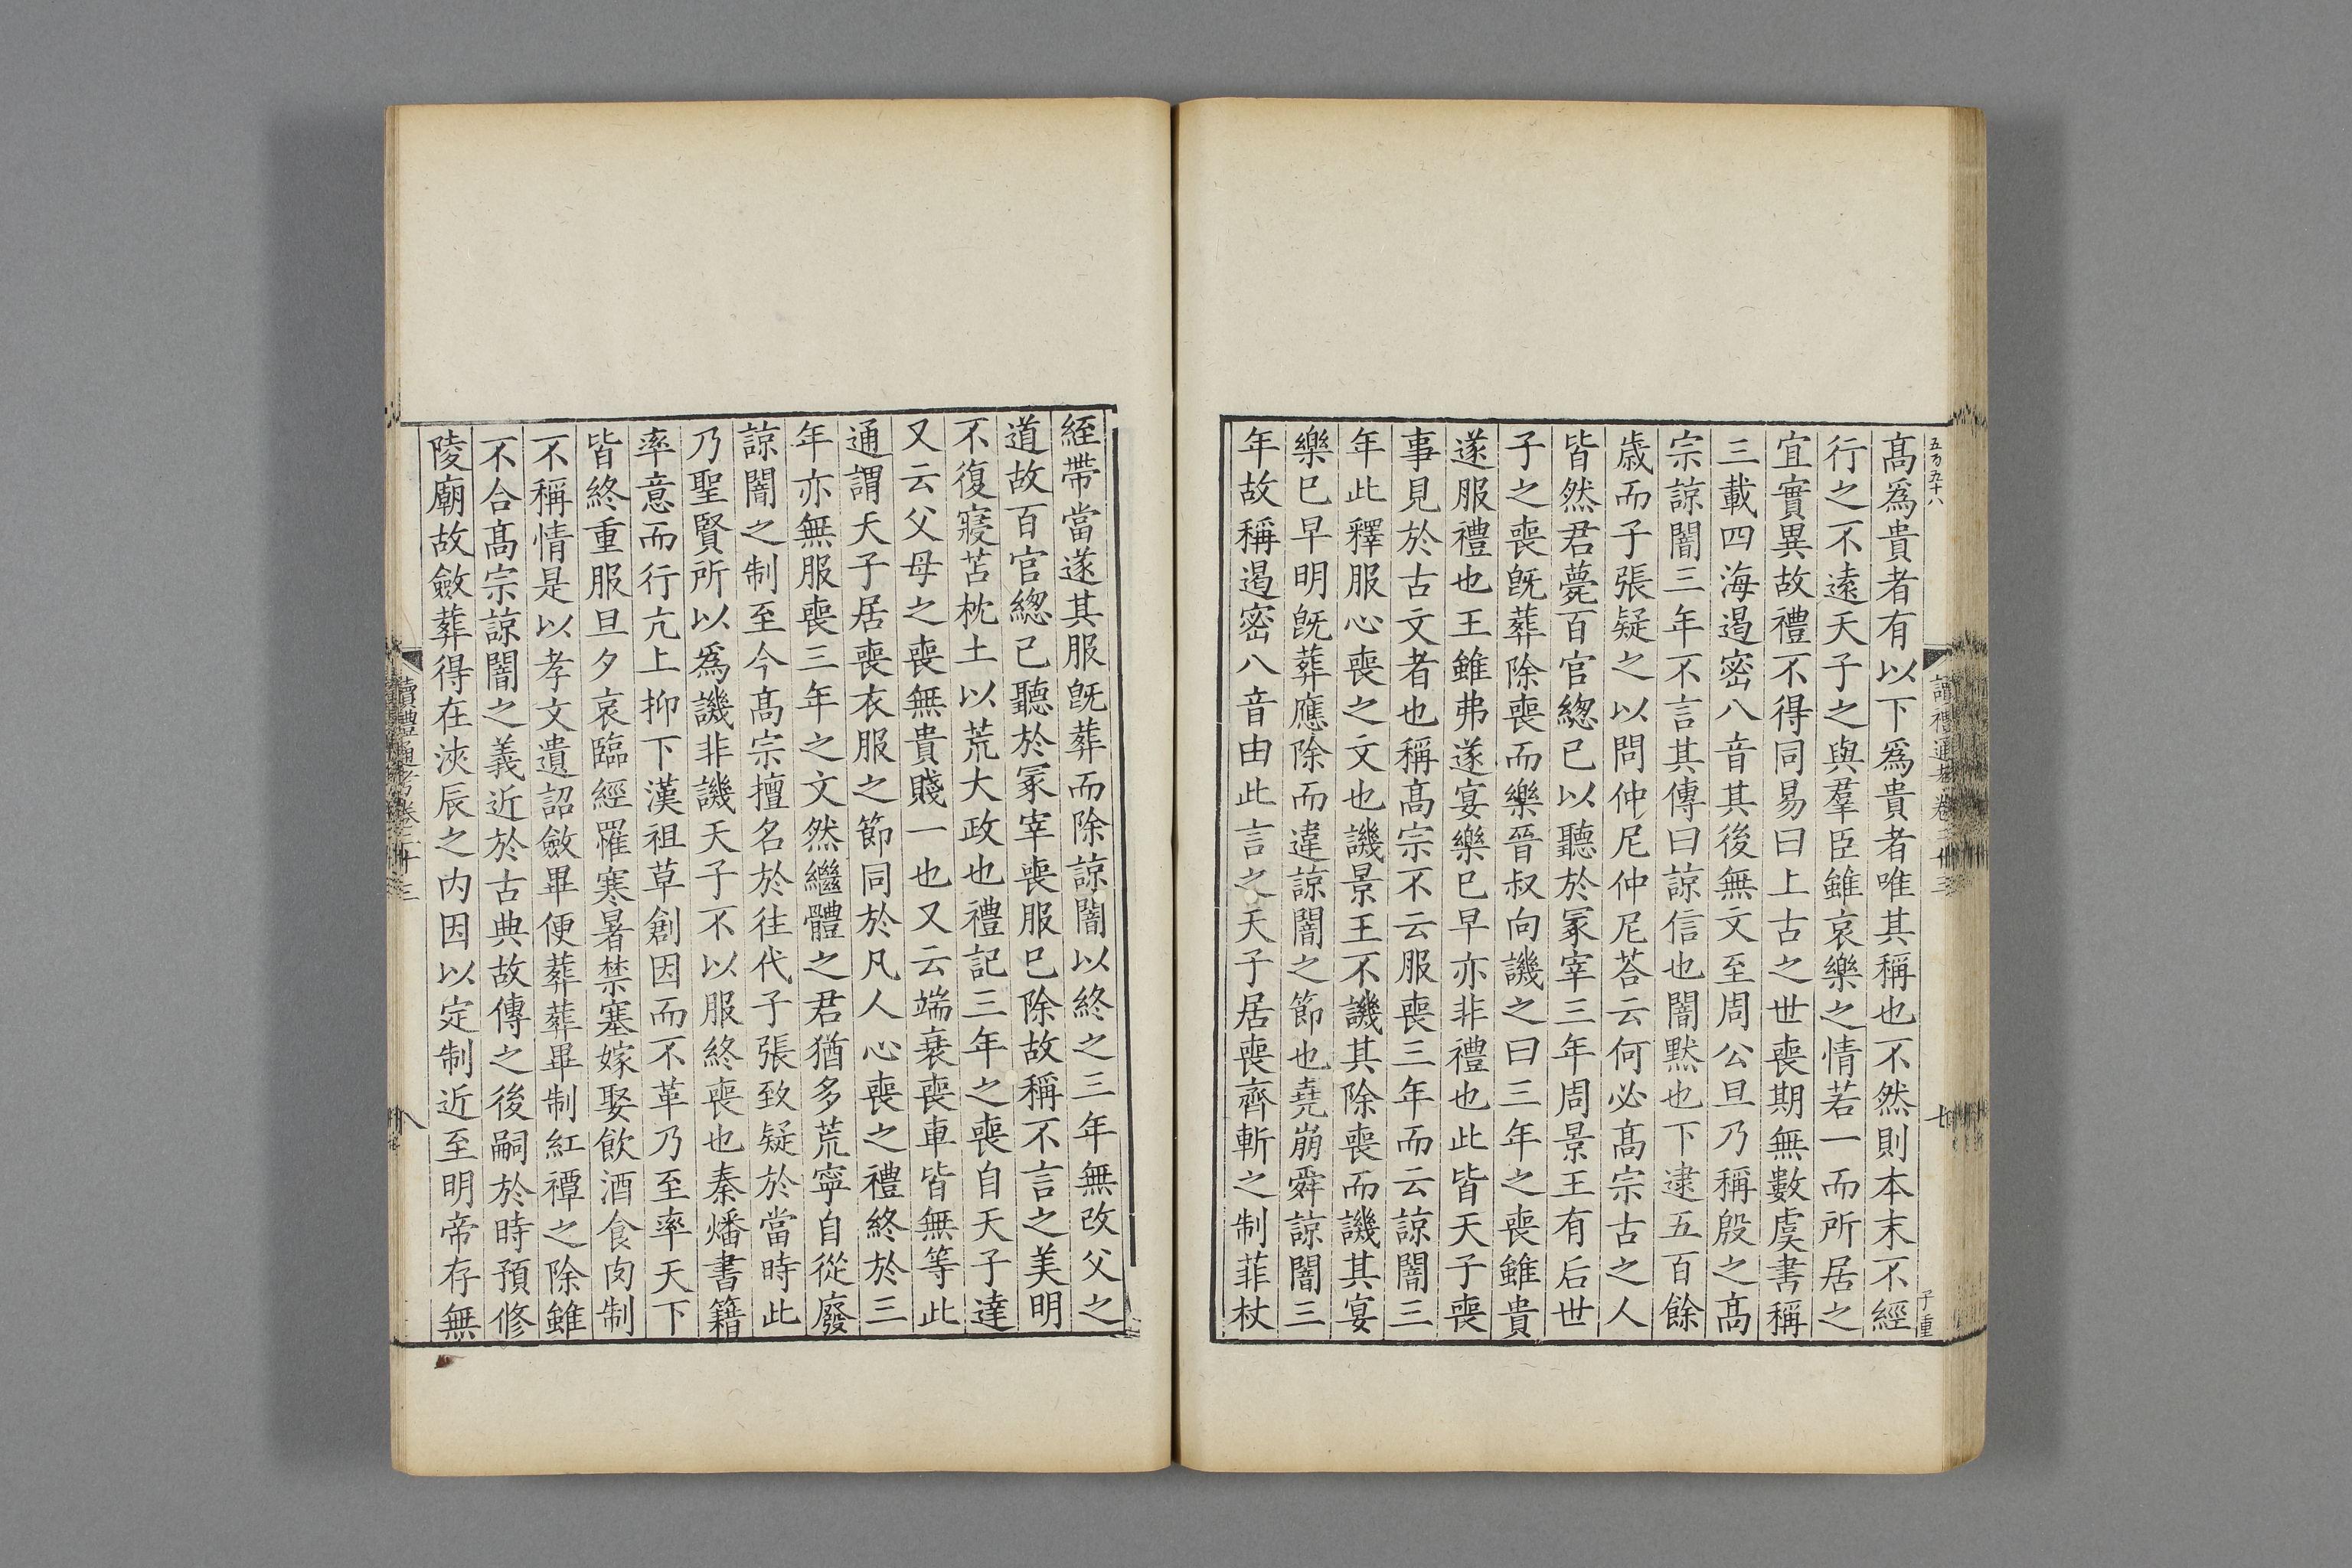 五万五十八
讀禮通考卷三十三
七
子重
髙爲貴者有以下爲貴者唯其稱也不然則本末不經
行之不遠天子之與羣臣雖哀樂之情若一而所居之
宜實異故禮不得同易曰上古之世喪期無數虞書稱
三載四海遏密八音其後無文至周公旦乃稱殷之髙
宗諒闇三年不言其傳曰諒信也闇黙也下逮五百餘
歲而子張疑之以問仲尼仲尼荅云何必髙宗古之人
皆然君薨百官緫已以聽於冢宰三年周景王有后世
子之喪旣葬除喪而樂晉叔向譏之曰三年之喪雖貴
遂服禮也王雖弗遂宴樂巳早亦非禮也此皆天子喪
事見於古文者也稱髙宗不云服喪三年而云諒闇三
年此釋服心喪之文也譏景王不譏其除喪而譏其宴
樂巳早明旣葬應除而違諒闇之節也堯崩舜諒闇三
年故稱遏密八音由此言之天子居喪齊斬之制菲杖
絰帶當遂其服旣葬而除諒闇以終之三年無改父之
道故百官緫已聽於冢宰喪服巳除故稱不言之美明
不復寢苫枕土以荒大政也禮記三年之喪自天子達
又云父母之喪無貴賤一也又云端衰喪車皆無等此
通謂天子居喪衣服之節同於凡人心喪之禮終於三
年亦無服喪三年之文然繼體之君猶多荒寧自從廢
諒闇之制至今髙宗擅名於往代子張致疑於當時此
乃聖賢所以爲譏非譏天子不以服終喪也秦燔書籍
率意而行亢上抑下漢祖草創因而不革乃至率天下
皆終重服旦夕哀臨經罹寒暑禁塞嫁娶飲酒食肉制
不稱情是以孝文遺詔斂畢便葬葬畢制紅禫之除雖
不合髙宗諒闇之義近於古典故傳之後嗣於時預修
陵廟故斂葬得在浹辰之內因以定制近至明帝存無
讀禮通考卷三十三
八